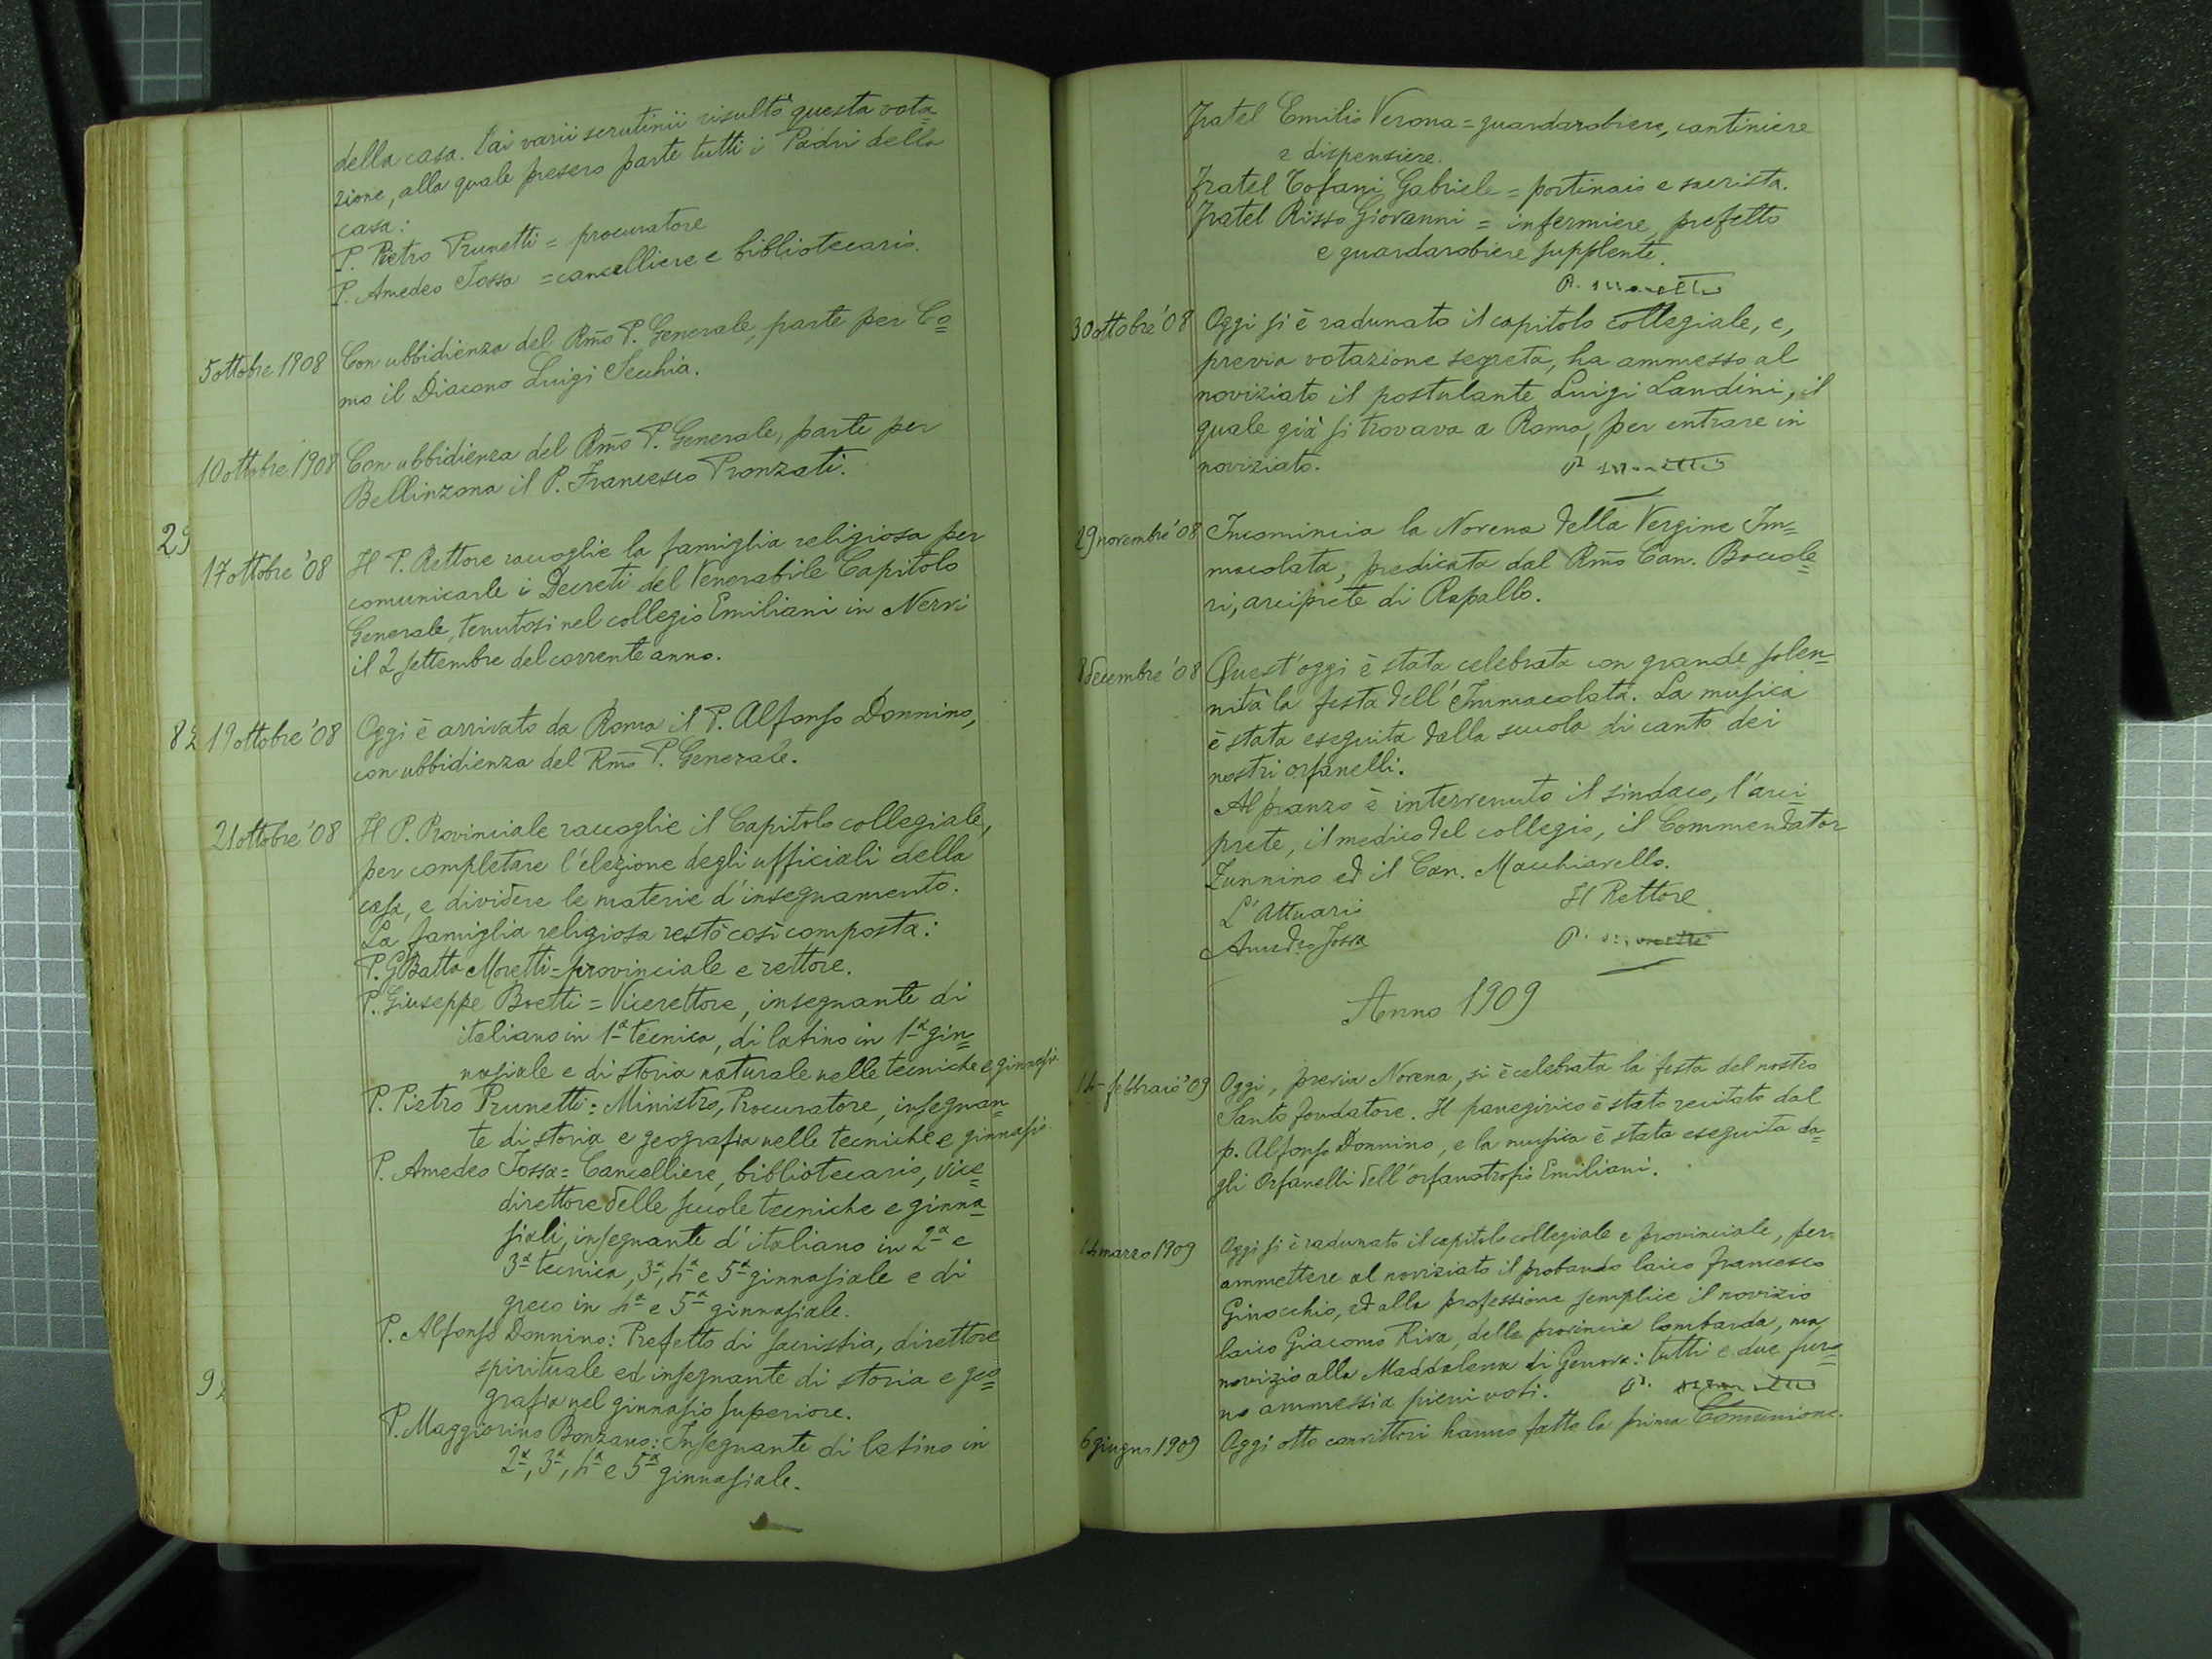 della casa. Dai varii scrutinii risultò questa vota=
zione, alla quale presero parte tutti i Padri della
casa:
P. Pietro Prunetti = procuratore
P. Amedeo Jossa = cancelliere e bibliotecario.
5 ottobre 1908 Con ubbidienza del Rm̃o P. Generale, parte per Co=
mo il Diacono Luigi Secchia.
10 ottobre 1908 Con ubbidienza del Rm̃o P. Generale, parte per
Bellinzona il P. Francesco Pronzati.
29
17 ottobre '08 Il P. Rettore raccoglie la famiglia religiosa per
comunicarle i Decreti del Venerabile Capitolo
Generale, tenutosi nel collegio Emiliani in Nervi
il 2 settembre del corrente anno.
82 19 ottobre '08 Oggi è arrivato da Roma il P. Alfonso Donnino,
con ubbidienza del Rm̃o P. Generale.
21 ottobre '08 Il P. Provinciale raccoglie il Capitolo collegiale,
per completare l'elezione degli ufficiali della
casa, e dividere le materie d'insegnamento.
La famiglia religiosa restò così composta:
P. GBatta Moretti = provinciale e rettore.
P. Giuseppe Boetti = Vicerettore, insegnante di
italiano in 1ª tecnica, di latino in 1ª gin=
nasiale e di storia naturale nelle tecniche e ginnasio
P. Pietro Prunetti = Ministro, Procuratore, insegnan=
te di storia e geografia nelle tecniche e ginnasio.
P. Amedeo Jossa = Cancelliere, bibliotecario, vice=
direttore delle scuole tecniche e ginna=
siali, insegnante d'italiano in 2ª e
3ª tecnica, 3ª, 4ª e 5ª ginnasiale e di
greco in 4ª e 5ª ginnasiale.
P. Alfonso Donnino: Prefetto di sacristia, direttore
spirituale ed insegnante di storia e geo=
grafia nel ginnasio superiore.
P. Maggiorino Bonzano: Insegnante di latino in
2ª, 3ª, 4ª e 5ª ginnasiale.
Fratel Emilio Verona = guardarobiere, cantiniere
e dispensiere.
Fratel Tofani Gabriele = portinaio e sacrista.
Fratel Risso Giovanni = infermiere, prefetto
e guardarobiere supplente.
P. Moretti
30 ottobre '08 Oggi si è radunato il capitolo collegiale, e,
previa votazione segreta, ha ammesso al
noviziato il postulante Luigi Landini, il
quale già si trovava a Roma, per entrare in
noviziato. P. Moretti
29 novembre '08 Incomincia la Novena della Vergine Im=
macolata, predicata dal Rm̃o Can. Boccole=
ri, arciprete di Rapallo.
8 decembre '08 Quest'oggi è stata celebrata con grande solen=
nità la festa dell'Immacolata. La musica
è stata eseguita dalla scuola di canto dei
nostri orfanelli.
Al pranzo è intervenuto il sindaco, l'arci=
prete, il medico del collegio, il Commendator
Zunnino ed il Can. Macchiavello.
L'Attuario Il Rettore
Amedeo Jossa P. Moretti
Anno 1909
14 febbraio '09 Oggi, previa Novena, si è celebrata la festa del nostro
Santo fondatore. Il panegirico è stato recitato dal
p. Alfonso Donnino, e la musica è stata eseguita da=
gli Orfanelli dell'orfanotrofio Emiliani.
14 marzo 1909 Oggi si è radunato il capitolo collegiale e provinciale, per
ammettere al noviziato il probando laico Francesco
Ginocchio, ed alla professione semplice il novizio
laico Giacomo Riva, della provincia lombarda, ma
novizio alla Maddalena di Genova: tutti e due furo=
no ammessi a pieni voti. P. Moretti
6 giugno 1909 Oggi otto convittori hanno fatto la prima Comunione.